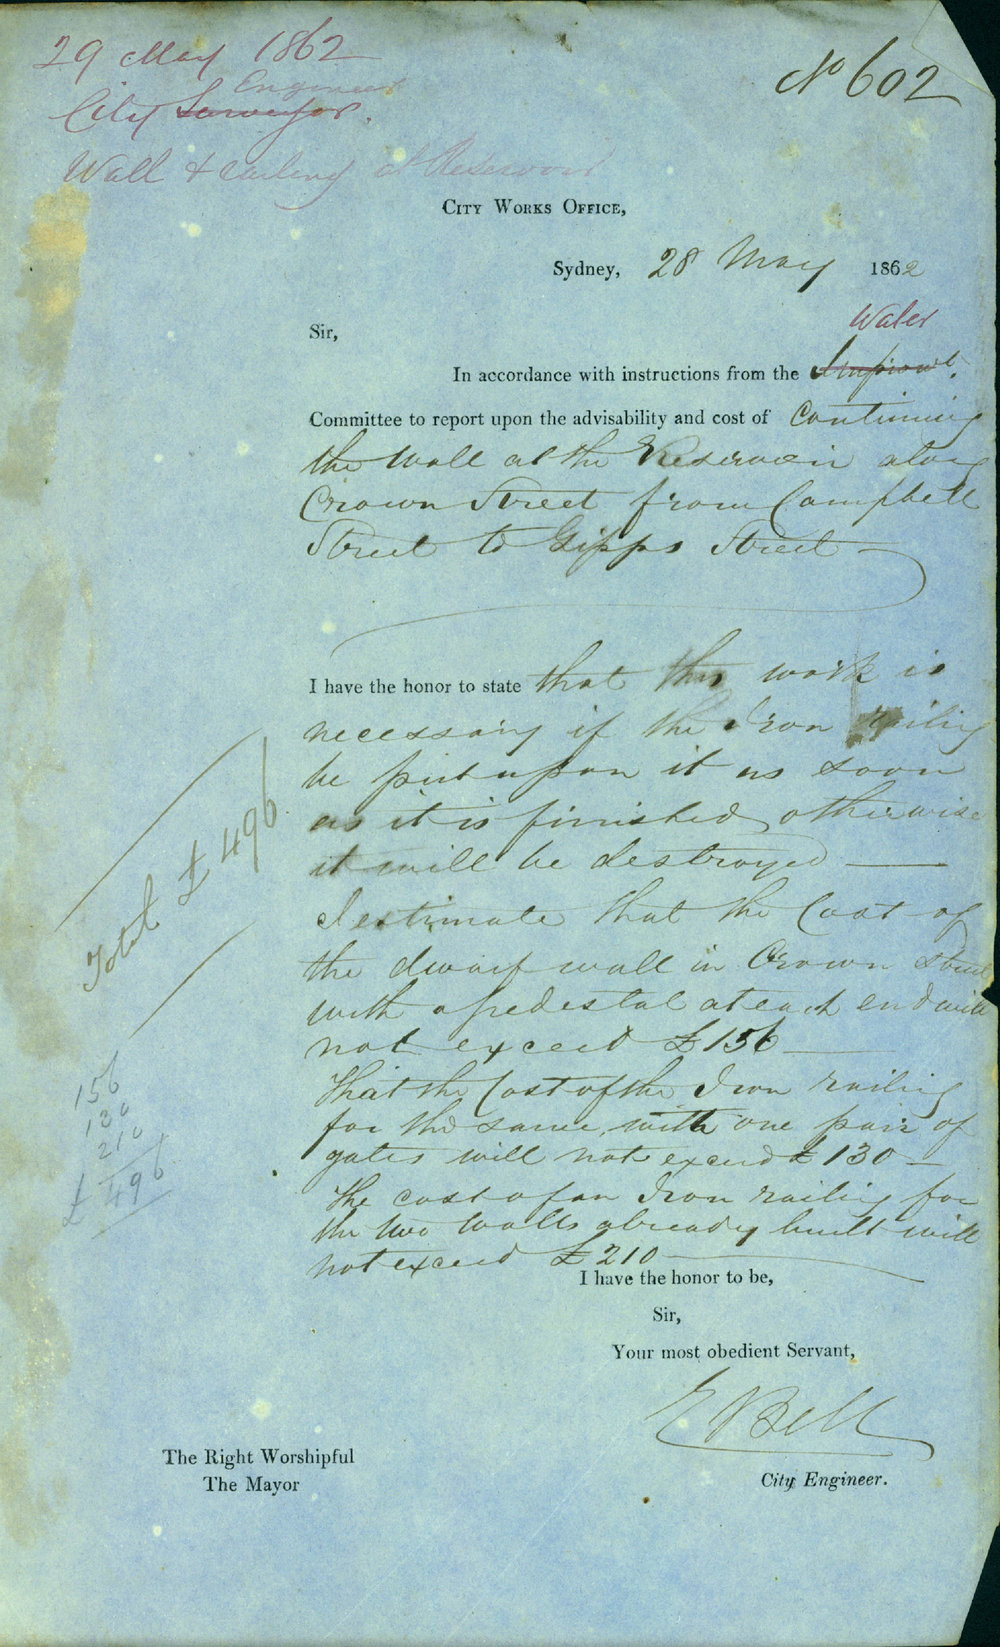 29 May 1862
Engineer
City Surveyor.
Wall & railing at Reservoir
No 602
City Works Office,
Sydney, 28 May 1862
Sir,
Water
In accordance with instructions from the Improvt.
Committee to report upon the advisability and cost of Continuing
the wall at the Reservoir along
Crown Street from Campbell
Street to Gipps Street
I have the honor to state that this work is
necessary if the Iron railing
be put upon it as soon
as it is finished, otherwise
it will be destroyed
I estimate that the Cost of
the dwarf wall in Crown Street
with a pedestal at each end will
not exceed £156
That the Cost of the Iron railing
for the same, with one pair of
gates will not exceed £130
The cost of an Iron railing for
the two walls already built will
not exceed £210
Total £496
156
130
210
£ 496
I have the honor to be,
Sir,
Your most obedient Servant,
E Bell
City Engineer.
The Right Worshipful
The Mayor